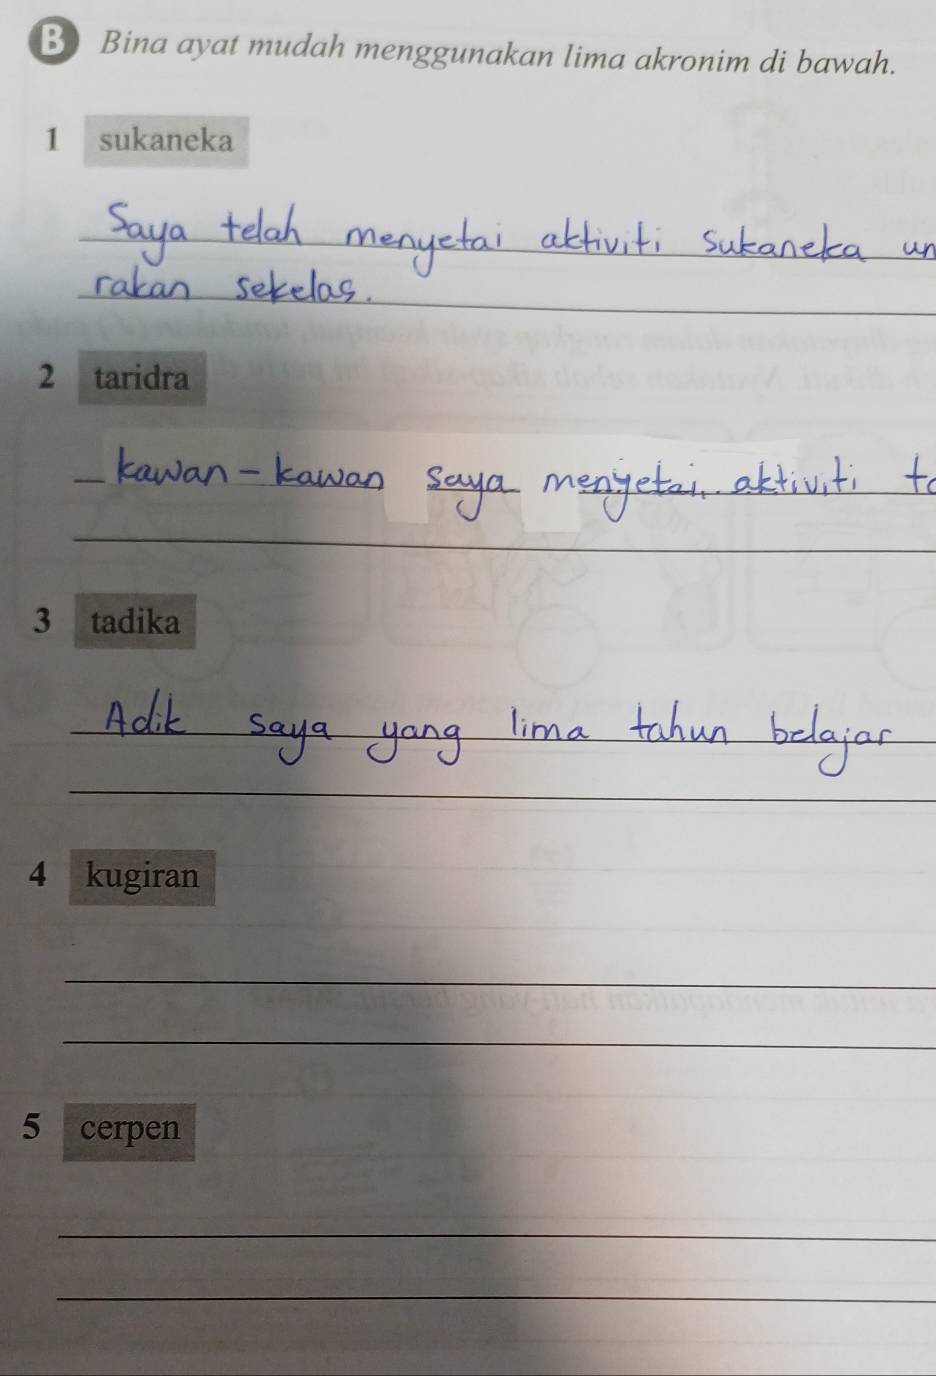 B Bina ayat mudah menggunakan lima akronim di bawah.
1 sukaneka
Saya telah menyetai aktiviti sukaneka un
rakan sekelas.
2 taridra
kawan-kawan saya menyetai aktiviti
3 tadika
Adik saya yang lima tahun belajar
4 kugiran
5 cerpen